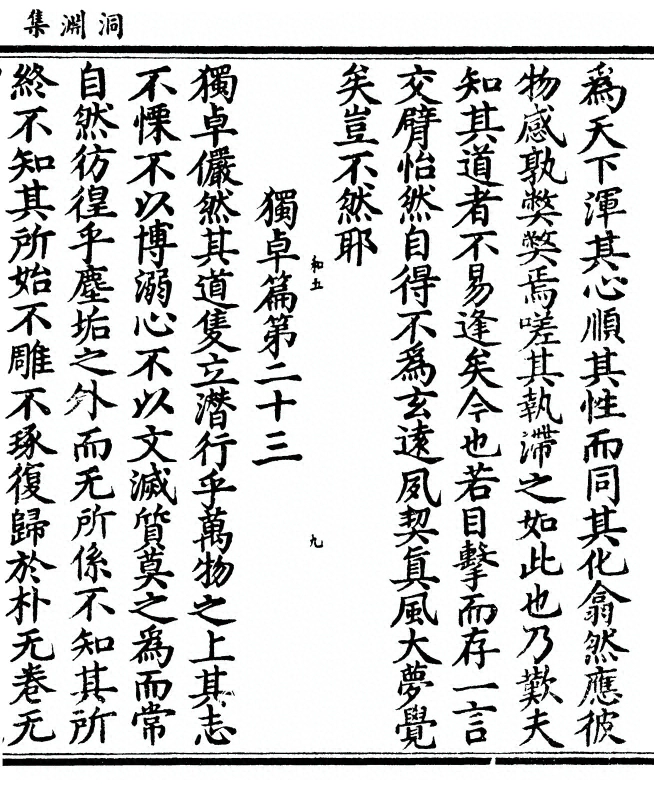 洞淵集
為天下渾其心順其性而同其化翕然應彼
物感孰弊弊焉嗟其執滯之如此也乃歎夫
知其道者不易逢矣今也若目擊而存一言
交臂怡然自得不為玄遠夙契真風大夢覺
矣豈不然耶
和五
九
獨卓篇第二十三
獨卓儼然其道隻立潛行乎萬物之上其志
不慄不以博溺心不以文滅質莫之為而常
自然彷徨乎塵垢之外而无所係不知其所
終不知其所始不雕不琢復歸於朴无卷无